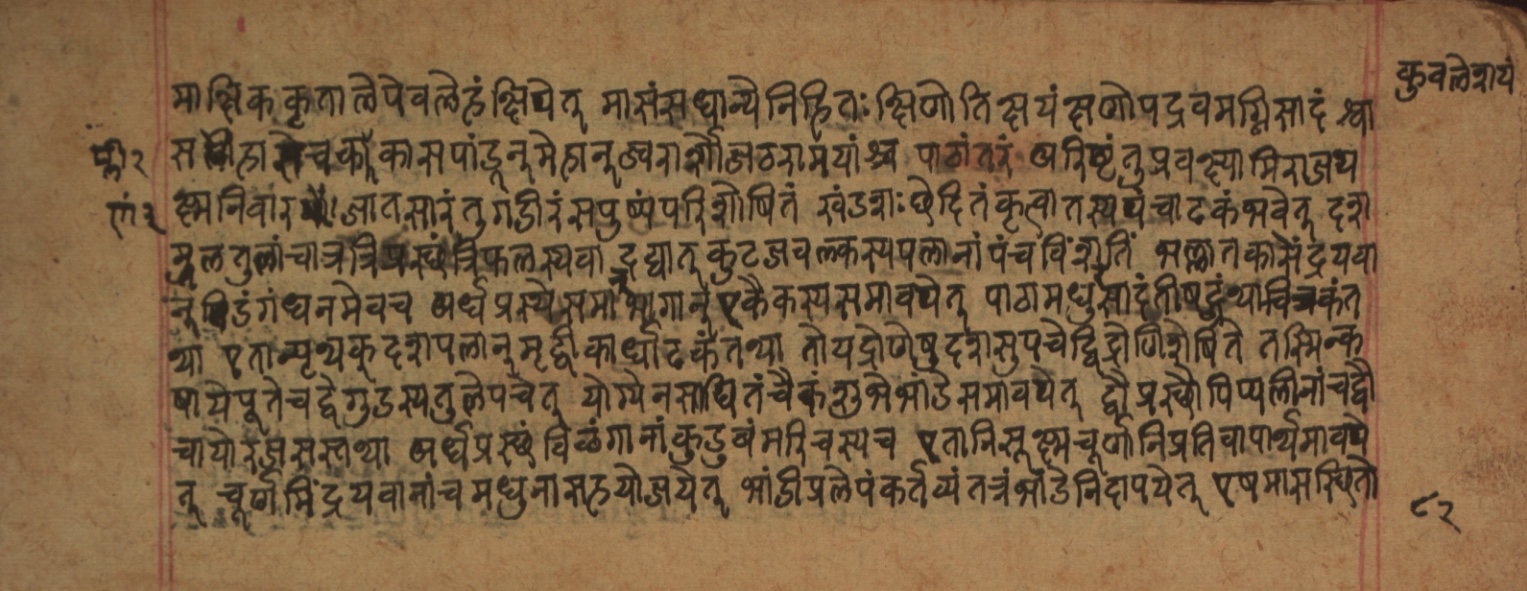 कुवलेशयं
माक्षिककृतालेपेवलेहं क्षिपेत् मासंसधान्येनिहितः क्षिणोति क्षयं क्षणोपद्रवमग्निसादं श्वा
प्ली२
सप्लीहा कासपांडून्मेहान्ज्वरार्शोजठरामयांश्च पाठांतरं अरिष्टंतुप्रवक्ष्यामिराजय
णं२
क्ष्मनिवारणं जातसारंतुगंडीरंसपुष्पंपरिशोषितं खंडशःछेदितंकृत्वातस्यपंचाढकंभवेत् दश
मुलतुलांचात्रत्रिप्रस्थंत्रिफलस्यवा दद्यात् कुटजवल्कस्यपलानांपंचविंशतिं भल्लातकासेंद्रयवा
न् विडंगंधनमेवच अर्धप्रस्थेसमाभागान् एकैकस्यसमावपेत् पाठामधु त
था एतान्पृथक्दशपलान्मृद्वीकार्धाढकंतथा तोयद्रोणेषुदशसुपचेद्विद्रोणिशेषिते तस्मिन्क
षायेपूतेचद्वेगुडस्यतुलेपचेत् योग्येनसाधितंचैकंशुभेभांडेसमावपेत् द्वौप्रस्थौपिप्पलीनांचद्वौ
चायोरजसस्तथा अर्धप्रस्थंविळंगानांकुडुवंमरिचस्यच एतानिसूक्ष्मचूर्णानिप्रतिवापार्थमावपे
त् चूर्णमिंद्रयवानांचमधुनासहयोजयेत् भांडीप्रलेपंकर्तव्यंतत्रंभांडेनिंदापयेत् एषमासस्थितो
८२